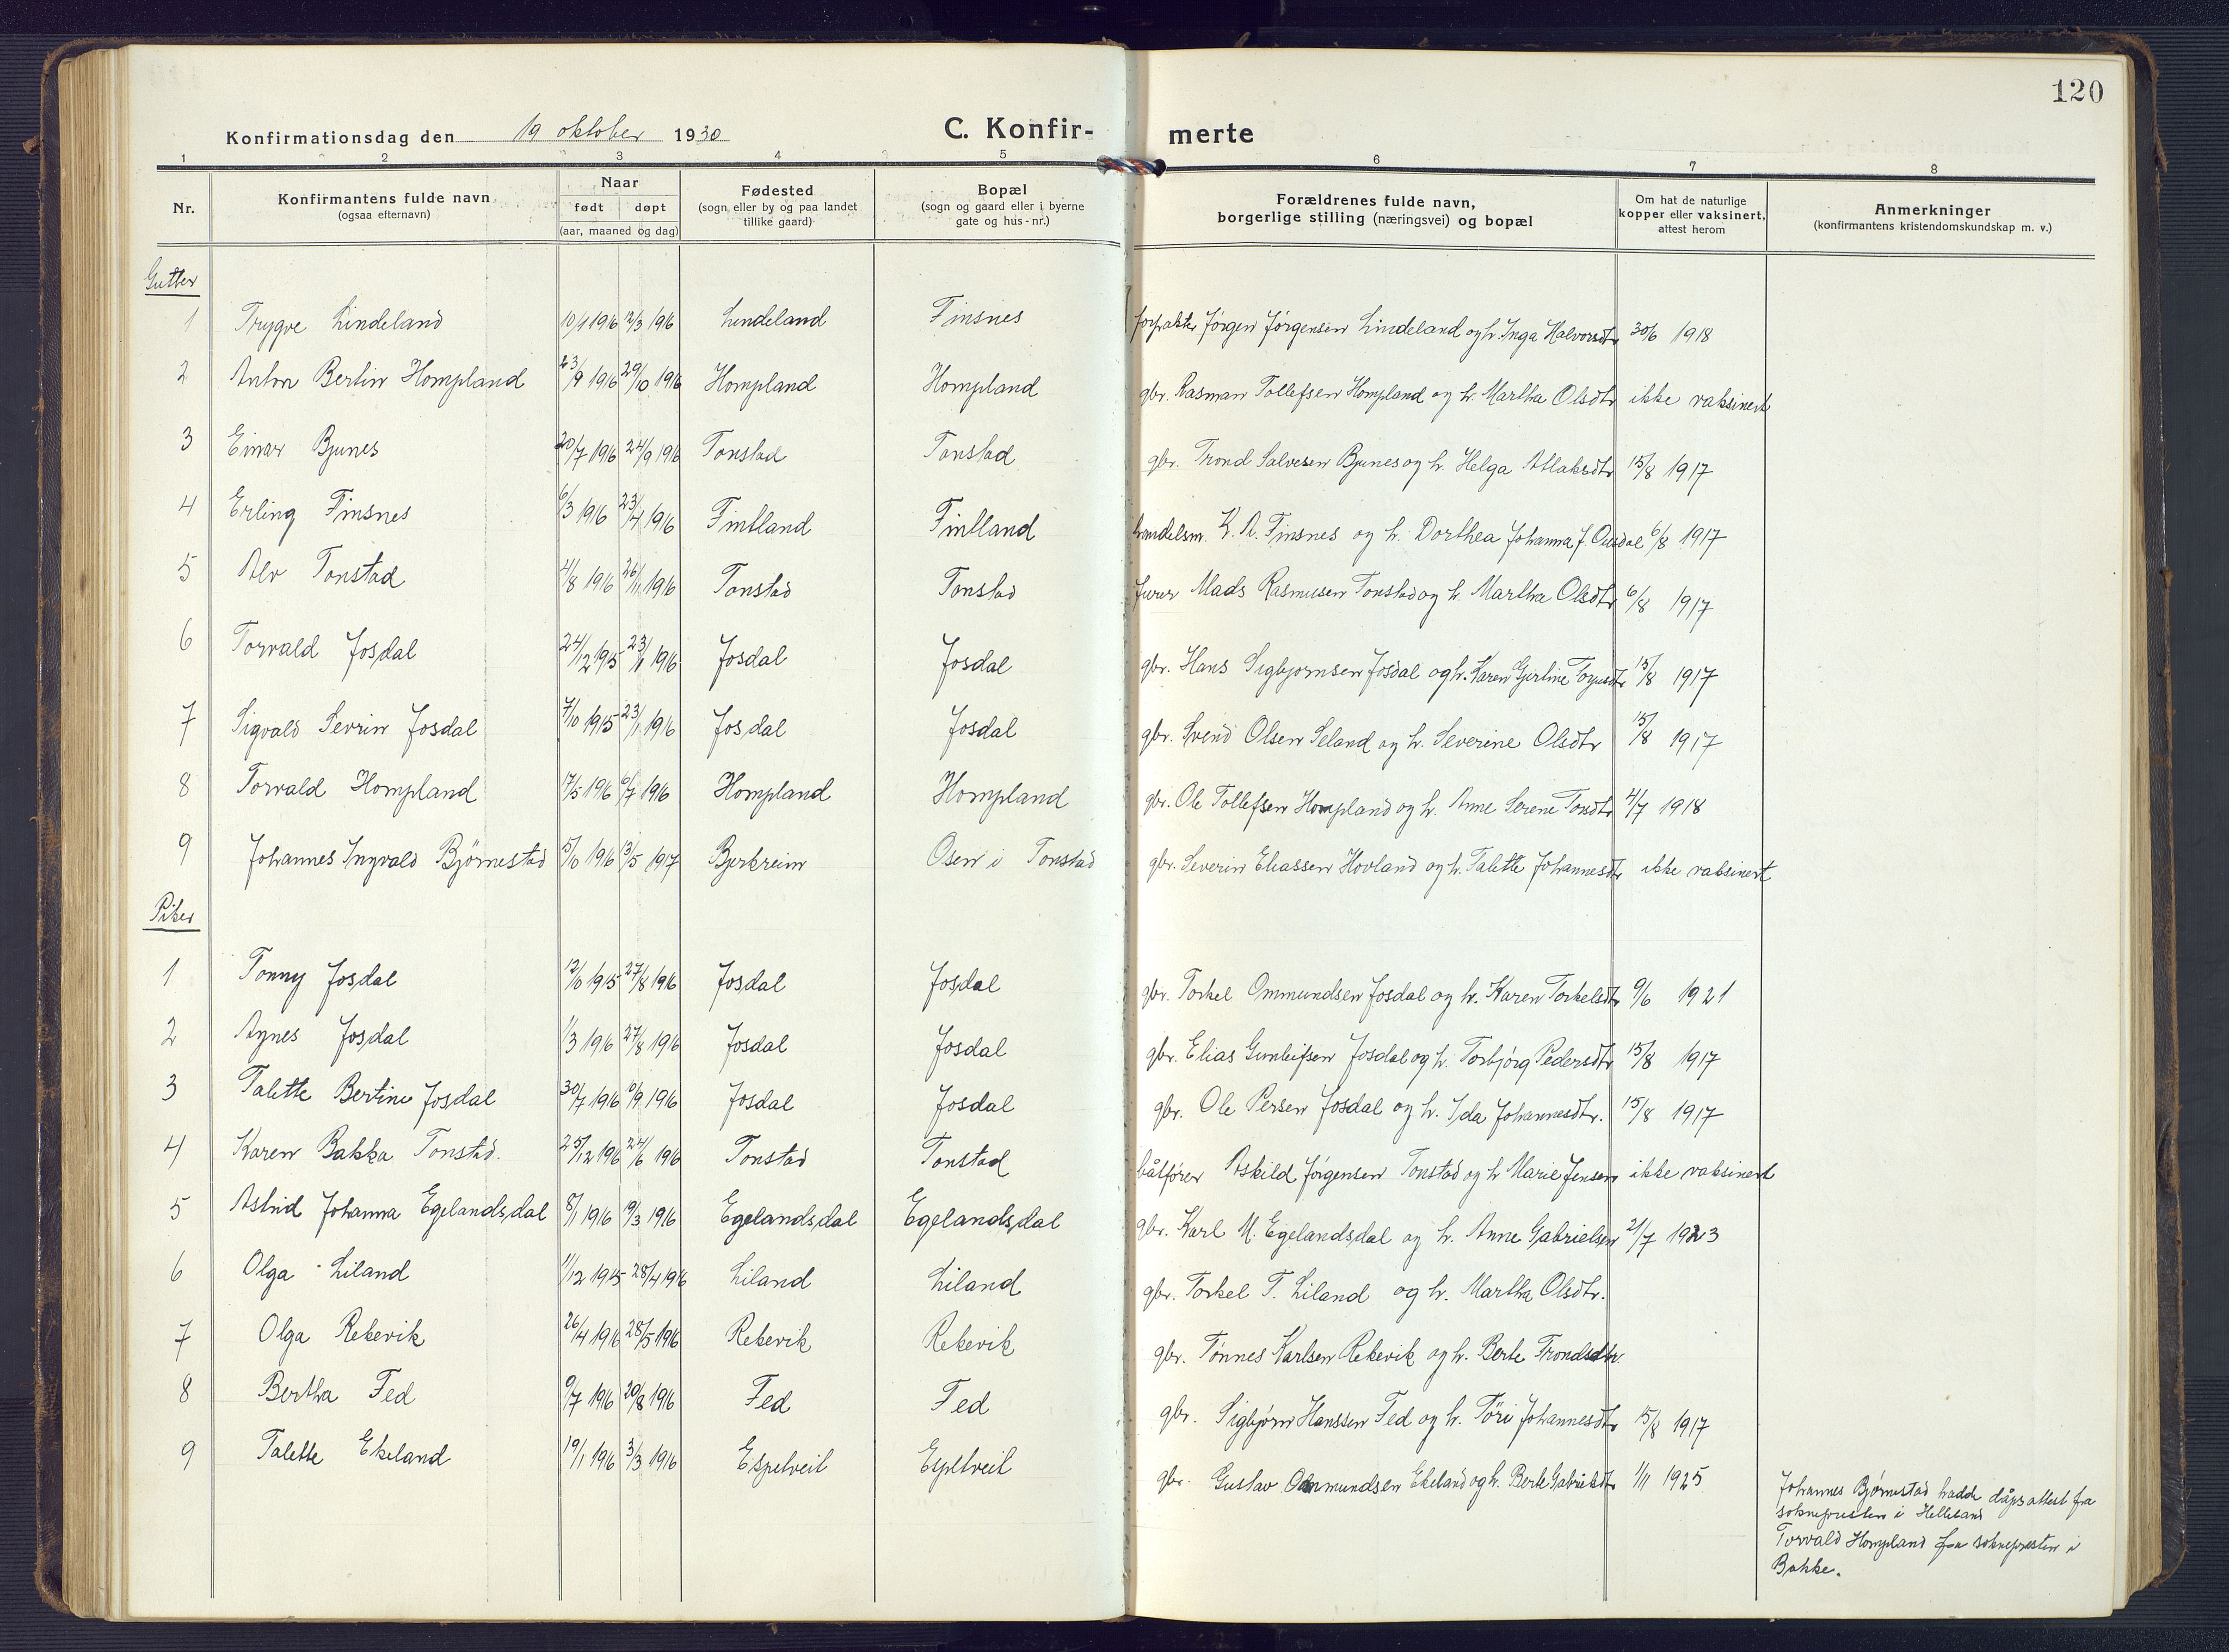 120
Konfirmationsdag den 19 oktober 1930
C. Konfir- merte
1 2 3 4 5 6 7 8
Nr.
Konfirmantens fulde navn
(ogsaa efternavn)
Naar
født døpt
(aar, maaned og dag)
Fødested
(sogn eller by og paa landet
tillike gaard)
Bopæl
(sogn og gaard eller i byerne
gate og hus-nr.)
Forældrenes fulde navn,
borgerlige stilling (næringsvei) og bopæl
Om hat de naturlige
kopper eller vaksinert,
attest herom
Anmerkninger
(konfirmantens kristendomskundskap m. v.)
Gutter
1 Trygve Lindeland 10/1 1916 12/3 1916 Lindeland Finsnes forpakter Jørgen Jørgensen Lindeland og h. Inga Halvorsdtr 30/6 1918
2 Anton Bertin Hompland 23/9 1916 29/10 1916 Hompland Hompland gbr. Rasman Tollefsen Hompland og h. Martha Olsdtr ikke vaksinert
3 Einar Bjunes 20/7 1916 24/9 1916 Tonstad Tonstad gbr. Trond Salvesen Bjunes og h. Helga Atlaksdtr 15/8 1917
4 Erling Finsnes 6/3 1916 23/4 1916 Fintland Fintland handelsm. K. A. Finsnes og h. Dorthea Johanna J. Ousdal 6/8 1917
5 Alv Tonstad 4/8 1916 26/11 1916 Tonstad Tonstad Mads Rasmusen Tonstad og h. Martha Olsdtr 6/8 1917
6 Torvald Josdal 24/12 1915 23/1 1916 Josdal Josdal gbr. Hans Sigbjørnsen Josdal og h. Karen Gjertine 15/8 1917
7 Sigvald Sevrin Josdal 7/10 1915 23/1 1916 Josdal Josdal gbr. Svend Olsen Seland og h. Severine Olsdtr 15/8 1917
8 Torvald Hompland 17/5 1916 9/7 1916 Hompland Hompland gbr. Ole Tollefsen Hompland og h. Anne Serene Tondtr 4/7 1918
9 Johannes Ingvald Bjørnestad 15/10 1916 13/5 1917 Bjerkreim Osen i Tonstad gbr. Severin Eliassen Hovland og h. Talette Johannesdtr ikke vaksinert
Piker
1 Tonny Josdal 12/10 1915 27/8 1916 Josdal Josdal gbr. Torkel Ommundsen Josdal og h. Karen Torkelsdtr 9/6 1921
2 Agnes Josdal 1/3 1916 27/8 1916 Josdal Josdal gbr. Elias Gunleifsen Josdal og h. Torbjørg Pedersdtr 15/8 1917
3 Talette Bertine Josdal 30/7 1916 10/9 1916 Josdal Josdal gbr. Ole Persen Josdal og h. Ida Johannesdtr. 15/8 1917
4 Karen Bakka Tonstad. 25/12 1916 24/6 1916 Tonstad Tonstad båtfører Askild Jørgensen Tonstad og h Marie Jensen ikke vaksinert
5 Astrid Johanna Egelandsdal 8/1 1916 19/3 1916 Egelandsdal Egelandsdal gbr. Karl M. Egelandsdal og h. Anne Gabrielsen 21/7 1923
6 Olga Liland 11/12 1915 28/4 1916 Liland Liland gbr. Torkel T. Liland og h. Martha Olsdtr.
7 Olga Rekevik 26/4 1916 28/5 1916 Rekevik Rekevik gbr. Tønnes Karlsen Rekevik og h. Berte Trondsdtr.
8 Bertha Fed 9/7 1916 20/8 1916 Fed Fed gbr. Sigbjørn Hanssen Fed og h. Töri Johannesdtr 15/8 1917
9 Talette Ekeland 19/1 1916 3/3 1916 Espetveit Espetveit gbr. Gustav Ommundsen Ekeland og h. Berte Gabrielsdtr 1/11 1925
Johannes Bjørnestad hadde dåpsattest fra
sokneprestin i Helleland
Torvald Hompland fra sokneprestin i
Bakke.